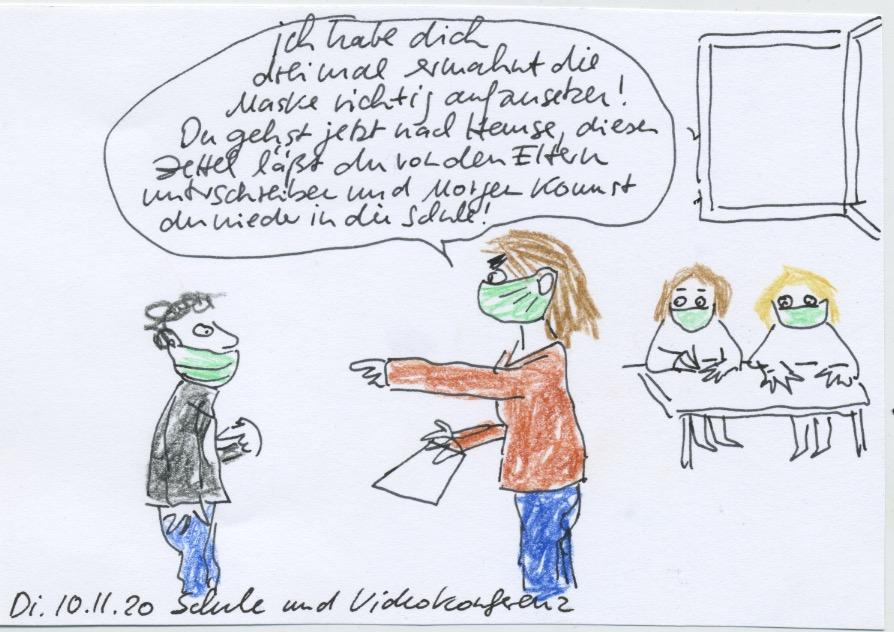 ich habe dich
dreimal ermahnt die
Maske richtig aufzusetzen!
Du gehst jetzt nach Hause, diesen
Zettel läßt du von den Eltern
unterschreiben und Morgen kommst
du wieder in die Schule!
Di. 10.11.20 Schule und Videokonferenz